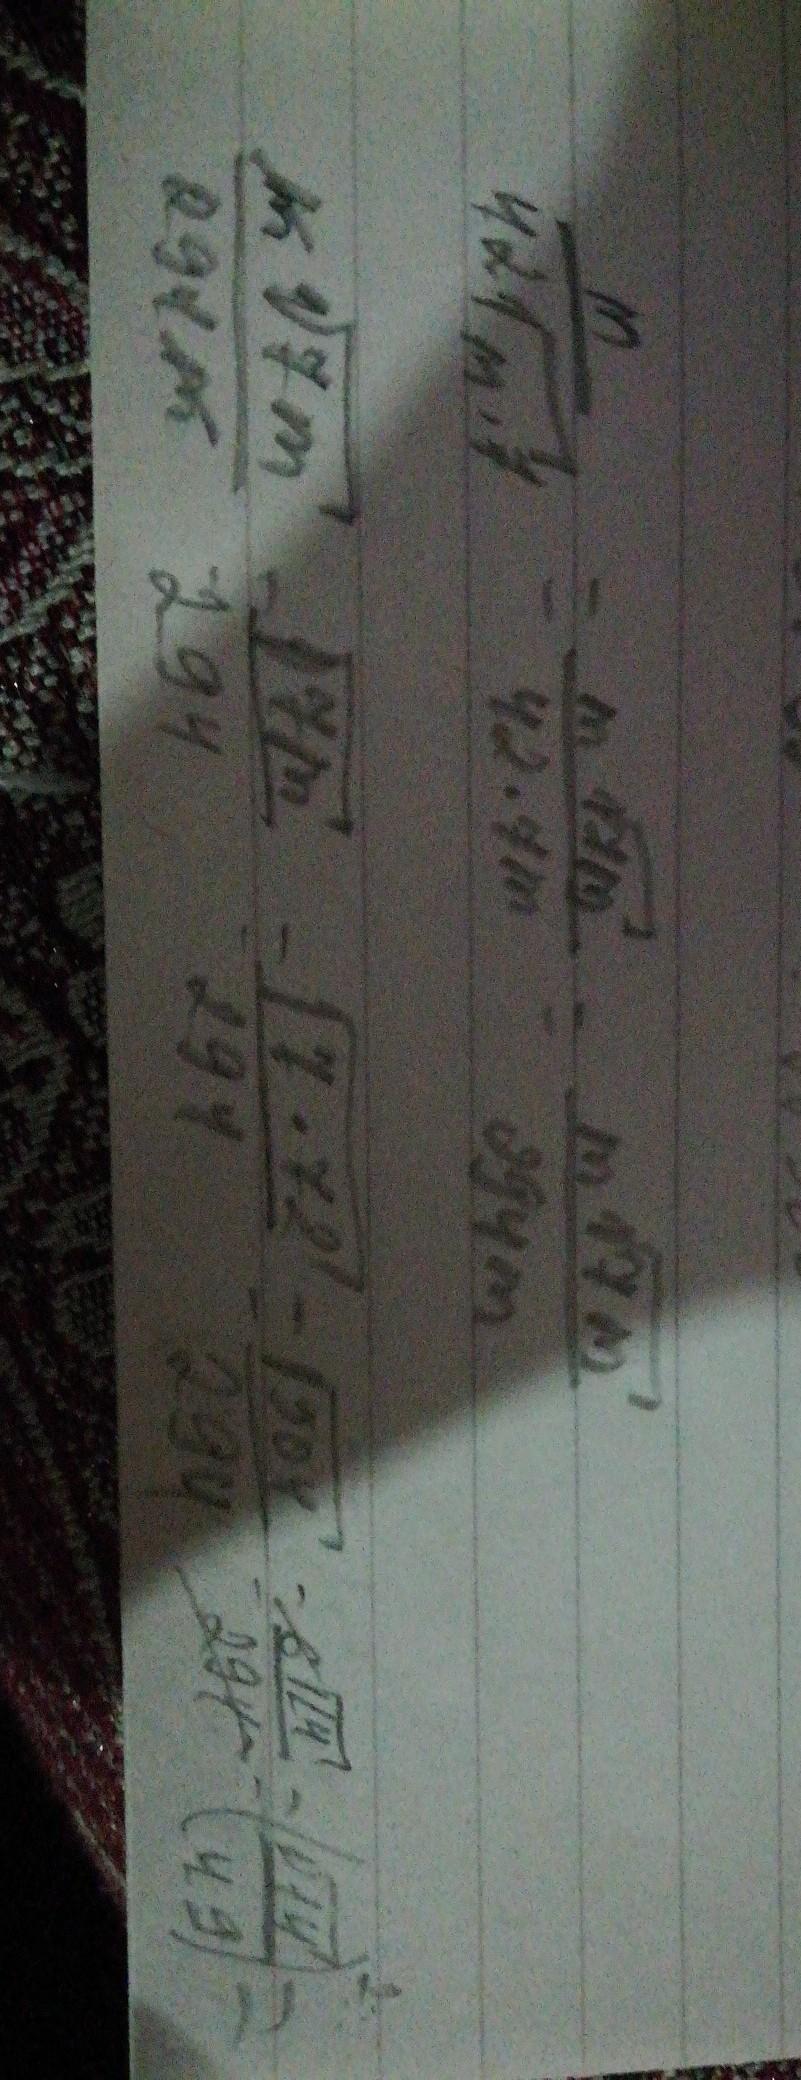 m/42√m·7 = m√7m/42·7m = m√7m/294m
m√7m/294m = √7m/294 = √7·72/294 = √504/294 = 6√14/294 = √14/49 =